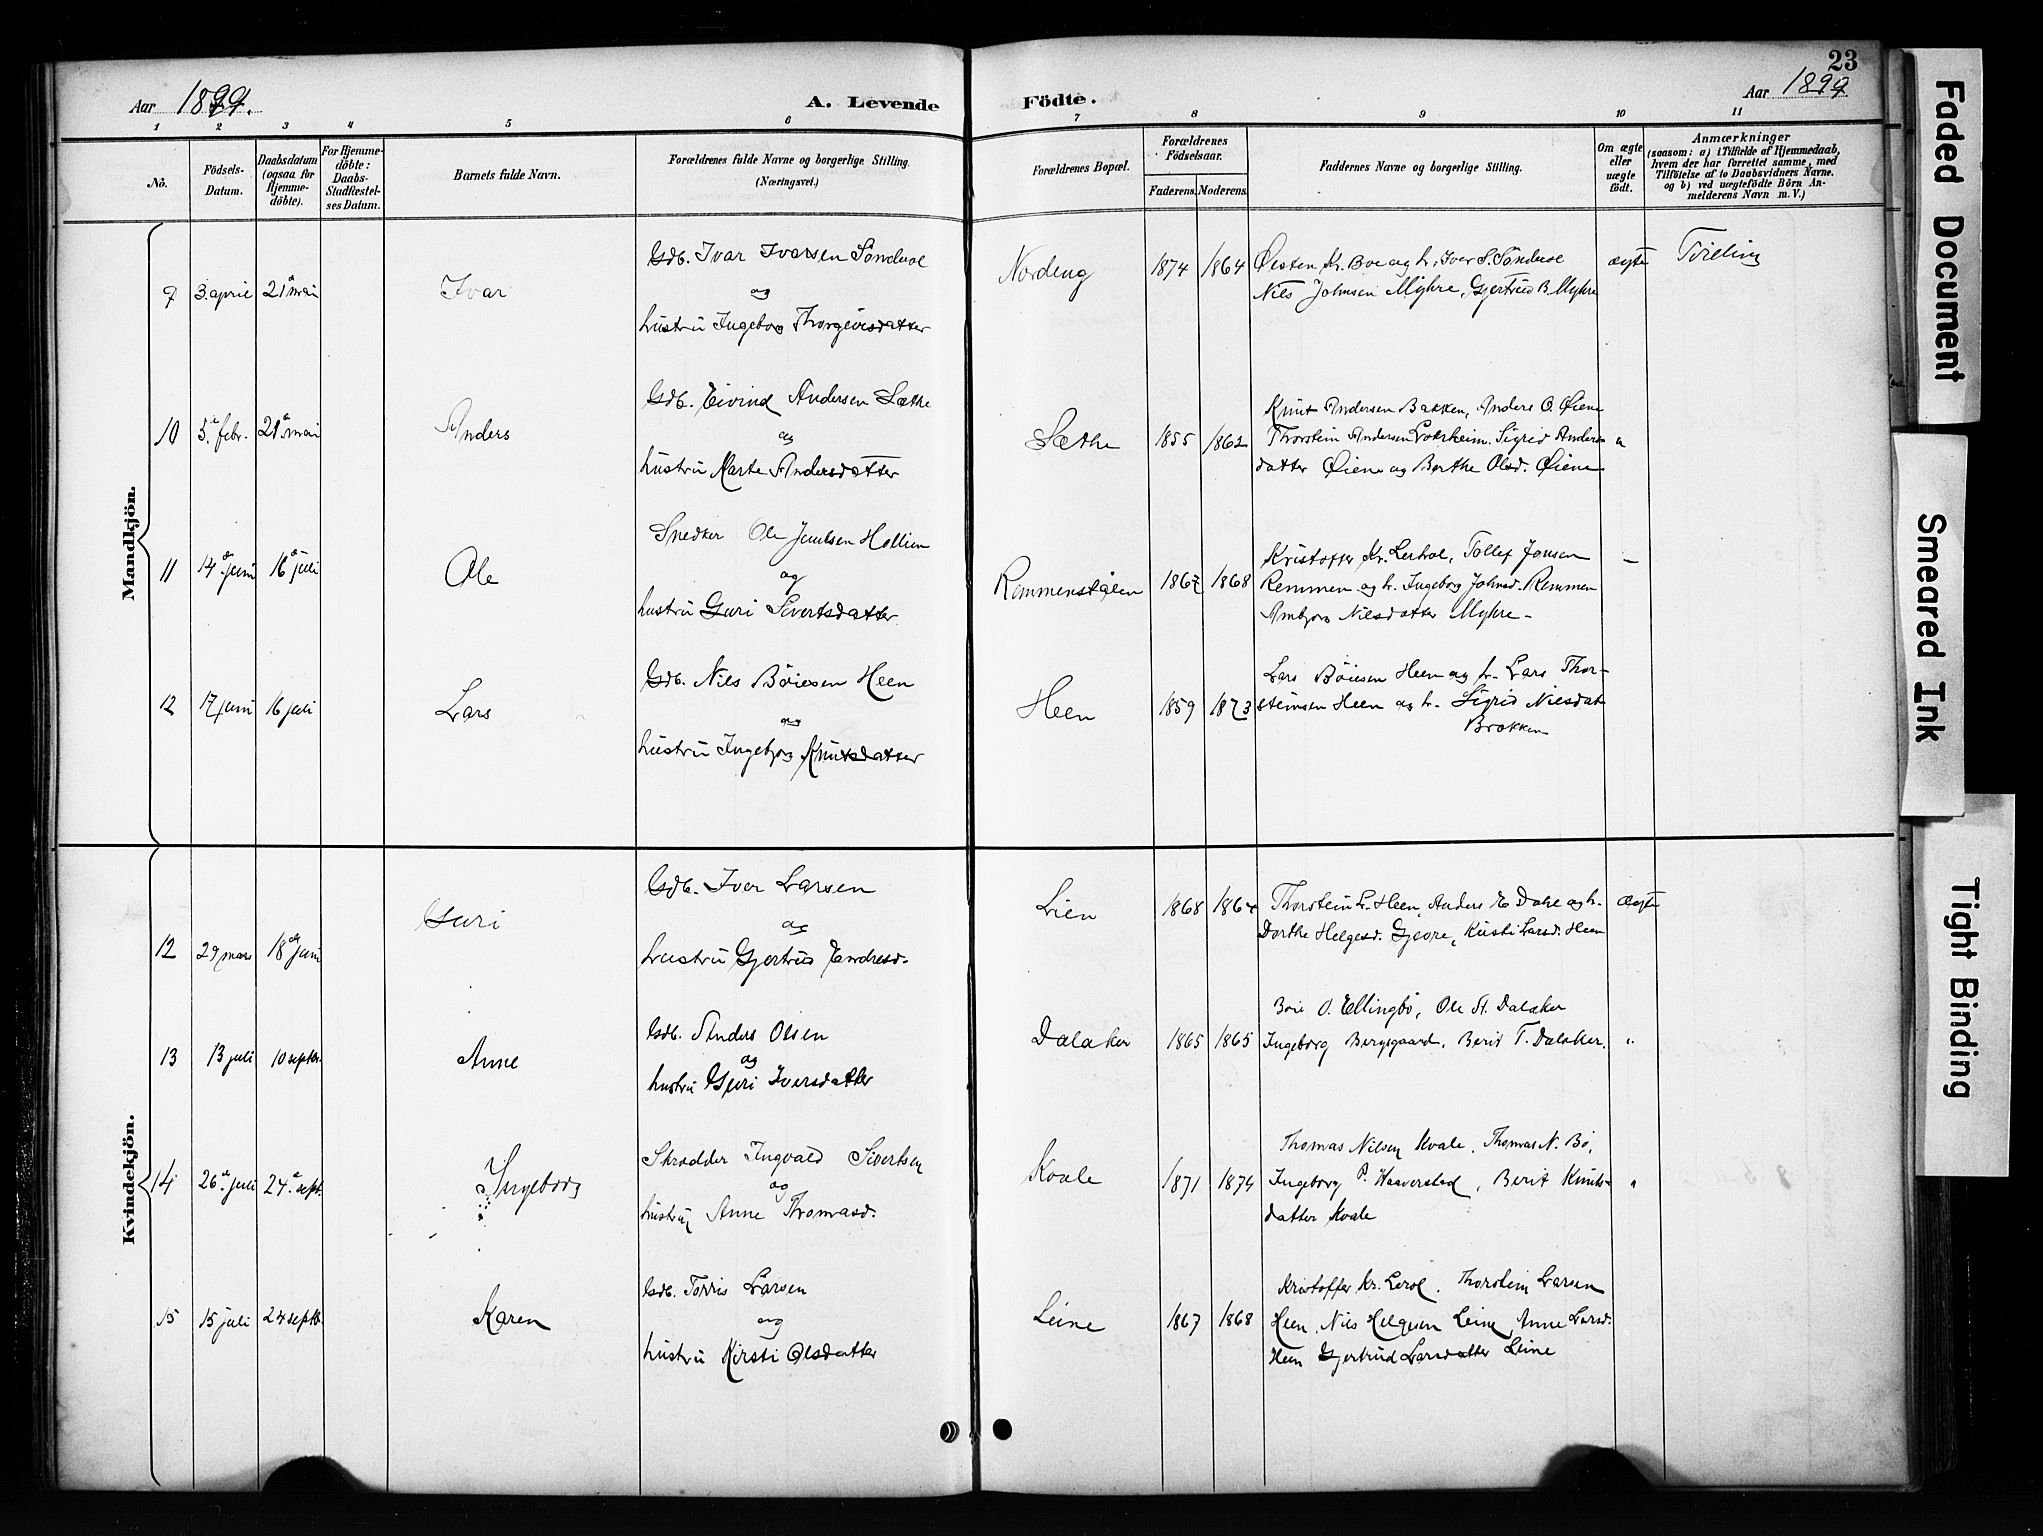 23
Aar 1899.
A. Levende Födte.
Aar 1899.
1 2 3 4 5 6 7 8 9 10 11
No.
Födsels-
Datum.
Daabsdatum
(ogsaa for
Hjemme-
döbte).
For Hjemme-
döbte:
Daabs-
Stadfæstel-
ses Datum.
Barnets fulde Navn.
Forældrenes fulde Navne og borgerlige Stilling.
(Næringsvei.)
Forældrenes Bopæl.
Forældrenes
Födselsaar.
Faderens. Moderens.
Faddernes Navne og borgerlige Stilling.
Om ægte
eller
uægte
födt.
Anmærkninger
(saasom: a) i Tilfælde af Hjemmedaab,
hvem der har forrettet samme, med
Tilföielse af to Daabsvidners Navne.
og b) ved uægtefödte Börn An-
melderens Navn m. V.)
Mandkjön.
9 3. april 21 mai
Ivar
Gdb. Ivar Ivarsen
og
hustru Ingeborg
Nordeng
1874 1864
Øisten Kr. Boe og h.
Nils Johnsen Myhre, Gjertrud B. Myhre
ægte
10 5. febr. 21 mai
Anders
Gdb. Eivind Andersen Sæthe
og
hustru Marte Andersdatter
Sæthe
1855 1862
Knut Andersen Bakken, Anders O. Øiene
Thorstein Andersen Sigrid Anders-
datter Øiene og Berthe Olsd. Øiene
11 14 juni 16 juli
Ole
Snedker Ole
og
hustru Guri Sivertsdatter
Remmenstølen
1867 1868
Kristoffer Kr. Tollef Jonsen
Remmen og h. Ingeborg Johnsd. Remmen
Nilsdatter Myhre -
12 17 juni 16 juli
Lars
Gdb. Nils Böiesen Heen
og
hustru Ingebjør Knutsdatter
Heen
1859 1873
Lars Böiesen Heen og h. Lars Thor-
steinsen Heen og h. Sigrid Nilsdat
Brokken
Kvindekjön.
12 29 mars 18 juni
Guri
Gdb. Iver Larsen
og
hustru Gjertrud Endresd.
Lien
1868 1864
Thorstein L. Heen, Anders E Dahe og h.
Dorthe Helgesd. Kristi Larsd. Heen
ægte
13 13 juli 10 septbr.
Anne
Gdb. Anders Olsen
og
hustru Guri Iversdatter
Dalaker
1865 1865
Boie O. Ellingbö, Ole A. Dalaker
Ingeborg Bergsgaard, Berit T. Dalaker.
"
14 26. juli 24. sept.
Ingeborg
Skrædder Ingvald Sivertsen
og
hustru Anne Thomasd.
Kvale
1871 1874
Thomas Nilsen Kvale, Thomas N. Bö,
Ingeborg P. Haaverstad, Berit Knuts-
datter Kvale
"
15 15 juli 24 septb.
Karen
Gdb. Torris Larsen
og
hustru Kirsti Olsdatter
Leine
1867 1868
Kristoffer Kr. Thorstein Larsen
Heen, Nils Helgesen Leine, Anne Larsd.
Heen Gjertrud Larsdatter Leine
Faded Document
Smeared Ink
Tight Binding